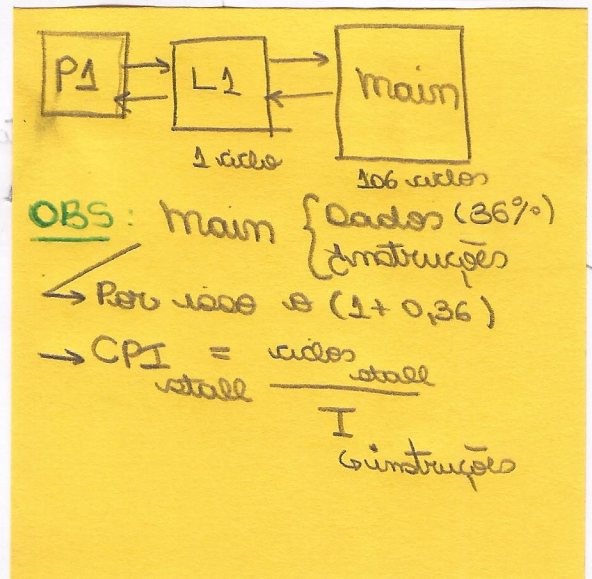 P1 L1 Main
1 ciclo
106 ciclos
OBS: Main { Dados (36%)
Instruções
→ Por isso o (1 + 0,36)
→ CPI stall = ciclos stall
I
↳ instruções